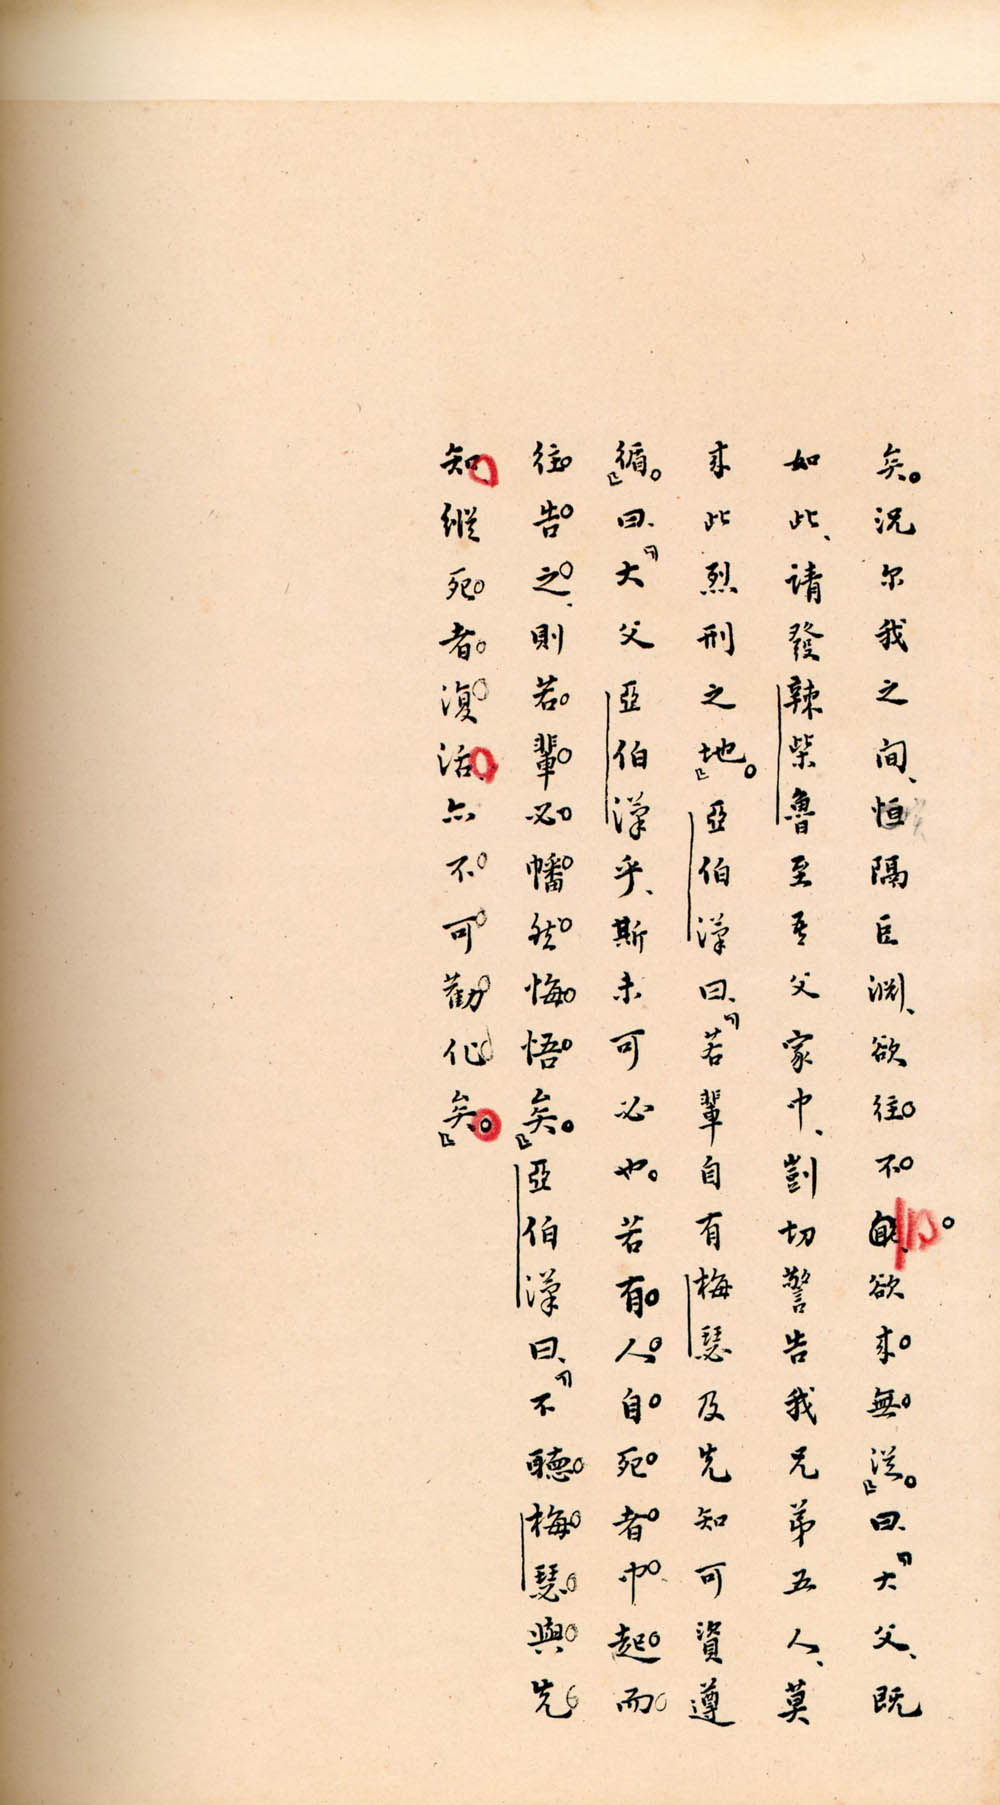 矣。況尔我之间、恒隔巨渊、欲往不能、欲来無从。』曰、『大父、既
如此、请發辣柴魯至吾父家中、剴切警告我兄弟五人、莫
来此烈刑之地。』亞伯漢曰、『若輩自有梅瑟及先知可資遵
循。』曰、『大父亞伯漢乎、斯未可必也。若有人自死者中起而
往告之、則若輩必幡然悔悟矣。』亞伯漢曰、『不聽梅瑟與先
知、縱死者復活、亦不可勸化矣。』